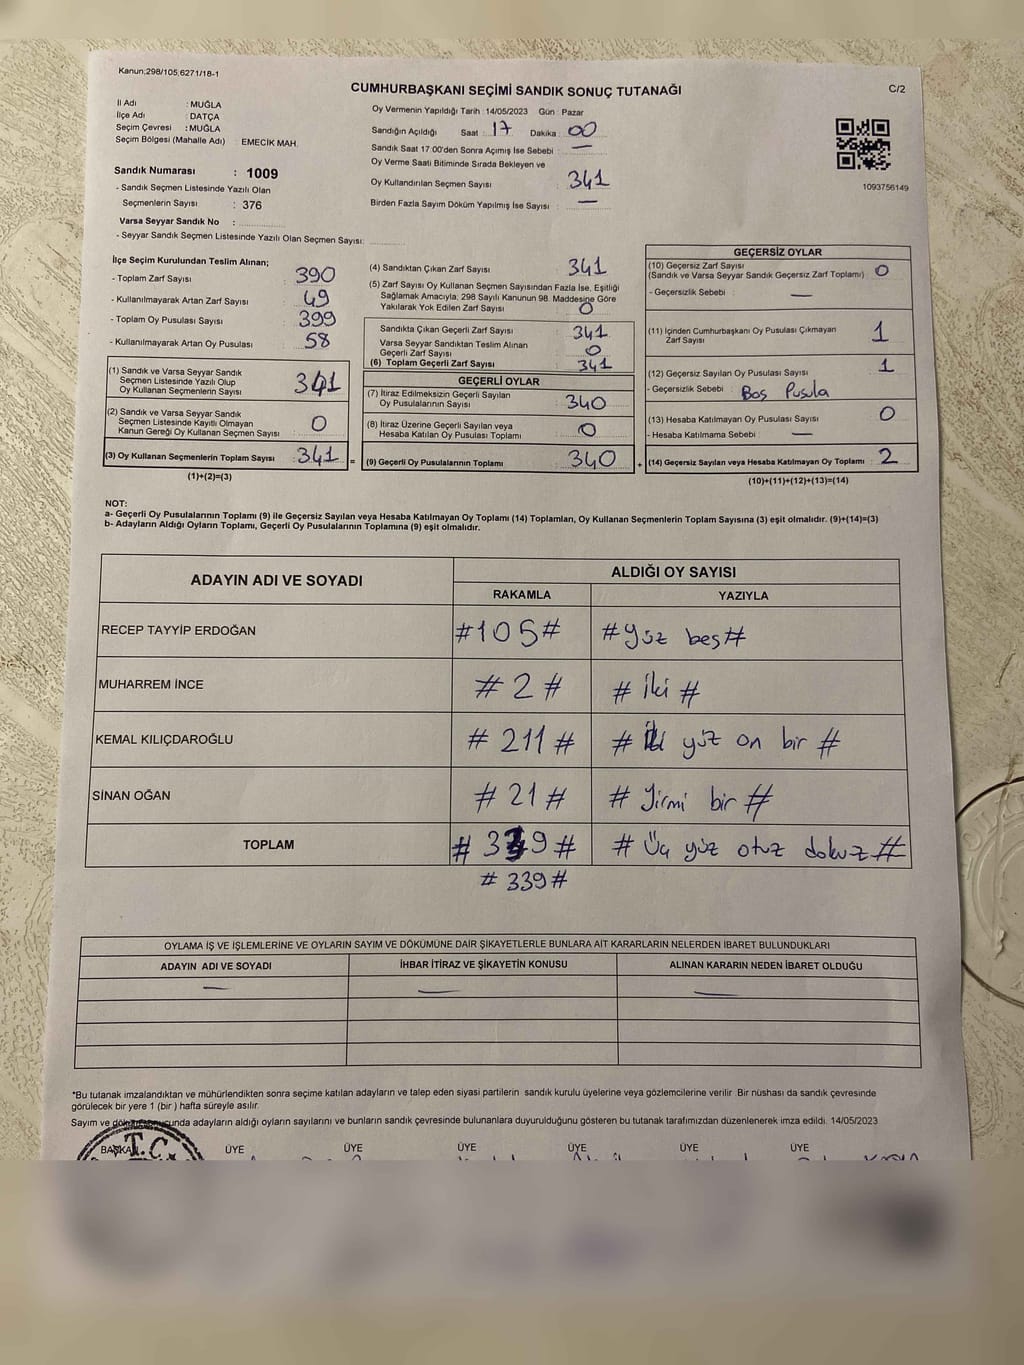 Kanun;298/105;6271/18-1
CUMHURBAŞKANI SEÇİMİ SANDIK SONUÇ TUTANAĞI
C/2
İl Adı : MUĞLA
İlçe Adı : DATÇA
Seçim Çevresi : MUĞLA
Seçim Bölgesi (Mahalle Adı) EMECİK MAH.
Sandık Numarası : 1009
- Sandık Seçmen Listesinde Yazılı Olan
Seçmenlerin Sayısı : 376
Varsa Seyyar Sandık No :
- Seyyar Sandık Seçmen Listesinde Yazılı Olan Seçmen Sayısı:
Oy Vermenin Yapıldığı Tarih 14/05/2023 Gün Pazar
Sandığın Açıldığı Saat : 17 Dakika : 00
Sandık Saat 17:00'den Sonra Açımış İse Sebebi : —
Oy Verme Saati Bitiminde Sırada Bekleyen ve
Oy Kullandırılan Seçmen Sayısı : 341
Birden Fazla Sayım Döküm Yapılmış İse Sayısı : —
1093756149
İlçe Seçim Kurulundan Teslim Alınan;
- Toplam Zarf Sayısı : 390
- Kullanılmayarak Artan Zarf Sayısı : 49
- Toplam Oy Pusulası Sayısı : 399
- Kullanılmayarak Artan Oy Pusulası : 58
(1) Sandık ve Varsa Seyyar Sandık
Seçmen Listesinde Yazılı Olup
Oy Kullanan Seçmenlerin Sayısı : 341
(2) Sandık ve Varsa Seyyar Sandık
Seçmen Listesinde Kayıtlı Olmayan
Kanun Gereği Oy Kullanan Seçmen Sayısı : 0
(3) Oy Kullanan Seçmenlerin Toplam Sayısı : 341 =
(1)+(2)=(3)
(4) Sandıktan Çıkan Zarf Sayısı : 341
(5) Zarf Sayısı Oy Kullanan Seçmen Sayısından Fazla İse, Eşitliği
Sağlamak Amacıyla, 298 Sayılı Kanunun 98. Maddesine Göre
Yakılarak Yok Edilen Zarf Sayısı : 0
Sandıkta Çıkan Geçerli Zarf Sayısı : 341
Varsa Seyyar Sandıktan Teslim Alınan
Geçerli Zarf Sayısı : 0
(6) Toplam Geçerli Zarf Sayısı : 341
GEÇERLİ OYLAR
(7) İtiraz Edilmeksizin Geçerli Sayılan
Oy Pusulalarının Sayısı : 340
(8) İtiraz Üzerine Geçerli Sayılan veya
Hesaba Katılan Oy Pusulası Toplamı : 0
(9) Geçerli Oy Pusulalarının Toplamı : 340 +
GEÇERSİZ OYLAR
(10) Geçersiz Zarf Sayısı
(Sandık ve Varsa Seyyar Sandık Geçersiz Zarf Toplamı) : 0
- Geçersizlik Sebebi : —
(11) İçinden Cumhurbaşkanı Oy Pusulası Çıkmayan
Zarf Sayısı : 1
(12) Geçersiz Sayılan Oy Pusulası Sayısı : 1
- Geçersizlik Sebebi : Boş Pusula
(13) Hesaba Katılmayan Oy Pusulası Sayısı : 0
- Hesaba Katılmama Sebebi : —
(14) Geçersiz Sayılan veya Hesaba Katılmayan Oy Toplamı : 2
(10)+(11)+(12)+(13)=(14)
NOT:
a- Geçerli Oy Pusulalarının Toplamı (9) ile Geçersiz Sayılan veya Hesaba Katılmayan Oy Toplamı (14) Toplamları, Oy Kullanan Seçmenlerin Toplam Sayısına (3) eşit olmalıdır. (9)+(14)=(3)
b- Adayların Aldığı Oyların Toplamı, Geçerli Oy Pusulalarının Toplamına (9) eşit olmalıdır.
ADAYIN ADI VE SOYADI ALDIĞI OY SAYISI
RAKAMLA YAZIYLA
RECEP TAYYİP ERDOĞAN #105# #Yüz beş#
MUHARREM İNCE #2# #İki#
KEMAL KILIÇDAROĞLU #211# #İki yüz on bir#
SİNAN OĞAN #21# #Yirmi bir#
TOPLAM #339# #Üç yüz otuz dokuz#
#339#
OYLAMA İŞ VE İŞLEMLERİNE VE OYLARIN SAYIM VE DÖKÜMÜNE DAİR ŞİKAYETLERLE BUNLARA AİT KARARLARIN NELERDEN İBARET BULUNDUKLARI
ADAYIN ADI VE SOYADI İHBAR İTİRAZ VE ŞİKAYETİN KONUSU ALINAN KARARIN NEDEN İBARET OLDUĞU
— — —
*Bu tutanak imzalandıktan ve mühürlendikten sonra seçime katılan adayların ve talep eden siyasi partilerin sandık kurulu üyelerine veya gözlemcilerine verilir. Bir nüshası da sandık çevresinde
görülecek bir yere 1 (bir) hafta süreyle asılır.
Sayım ve döküm sonucunda adayların aldığı oyların sayılarını ve bunların sandık çevresinde bulunanlara duyurulduğunu gösteren bu tutanak tarafımızdan düzenlenerek imza edildi. 14/05/2023
BAŞKAN ÜYE ÜYE ÜYE ÜYE ÜYE ÜYE
T.C.